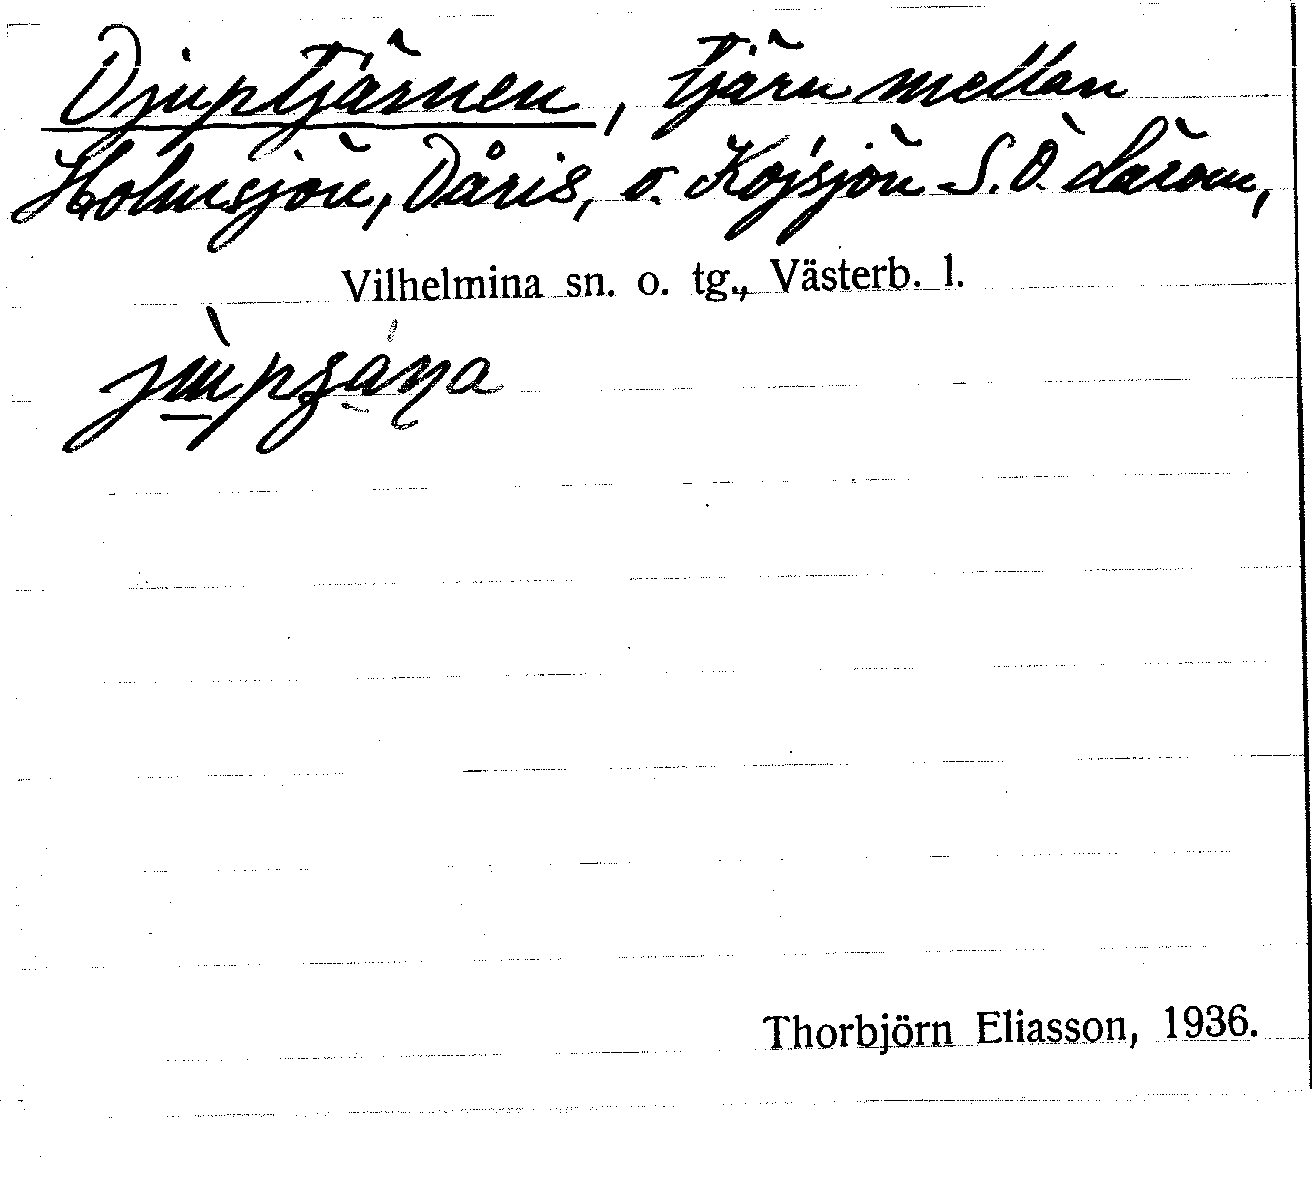 Djuptjärnen, tjärn mellan
Holmsjön, Dåris, o. Kojsjön S.Ö.
Vilhelmina sn. o. tg., Västerb. l.
Thorbjörn Eliasson, 1936.